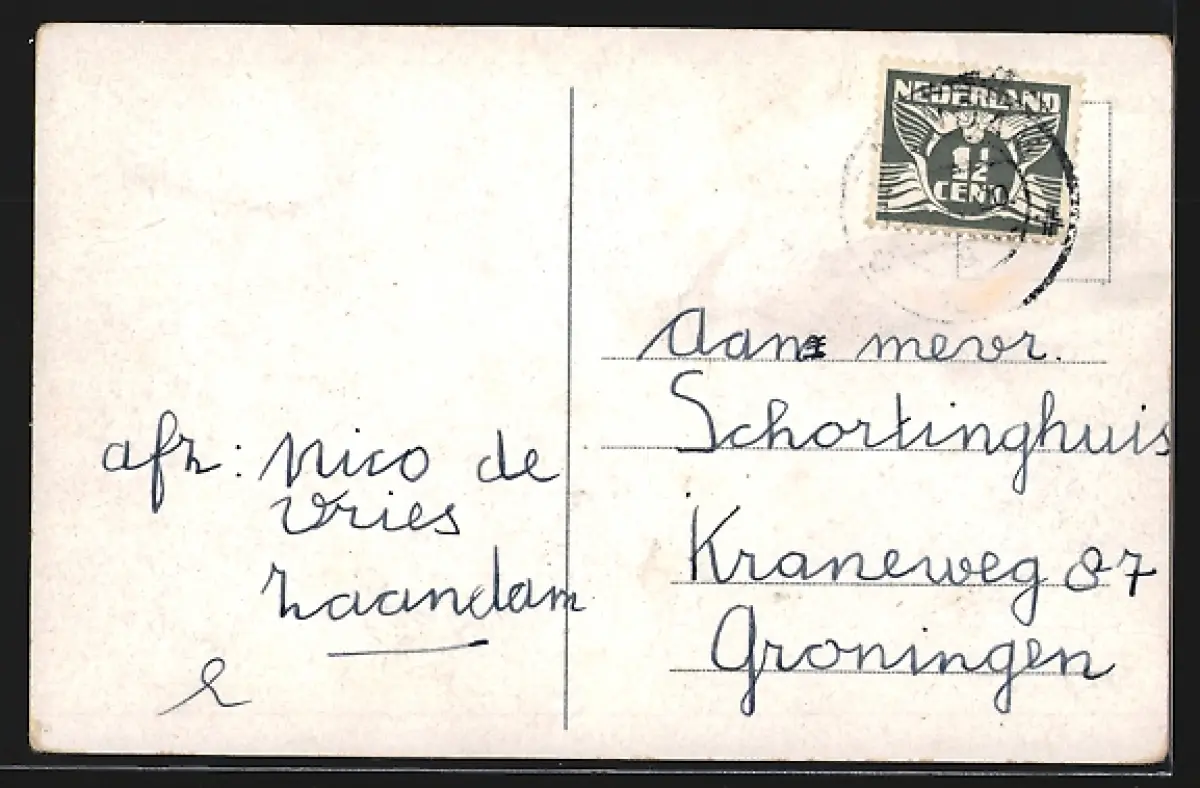 NEDERLAND
1½
CENT
Aan mevr.
Schortinghuis
Kraneweg 87
Groningen
afz: Nico de
Vries
Zaandam